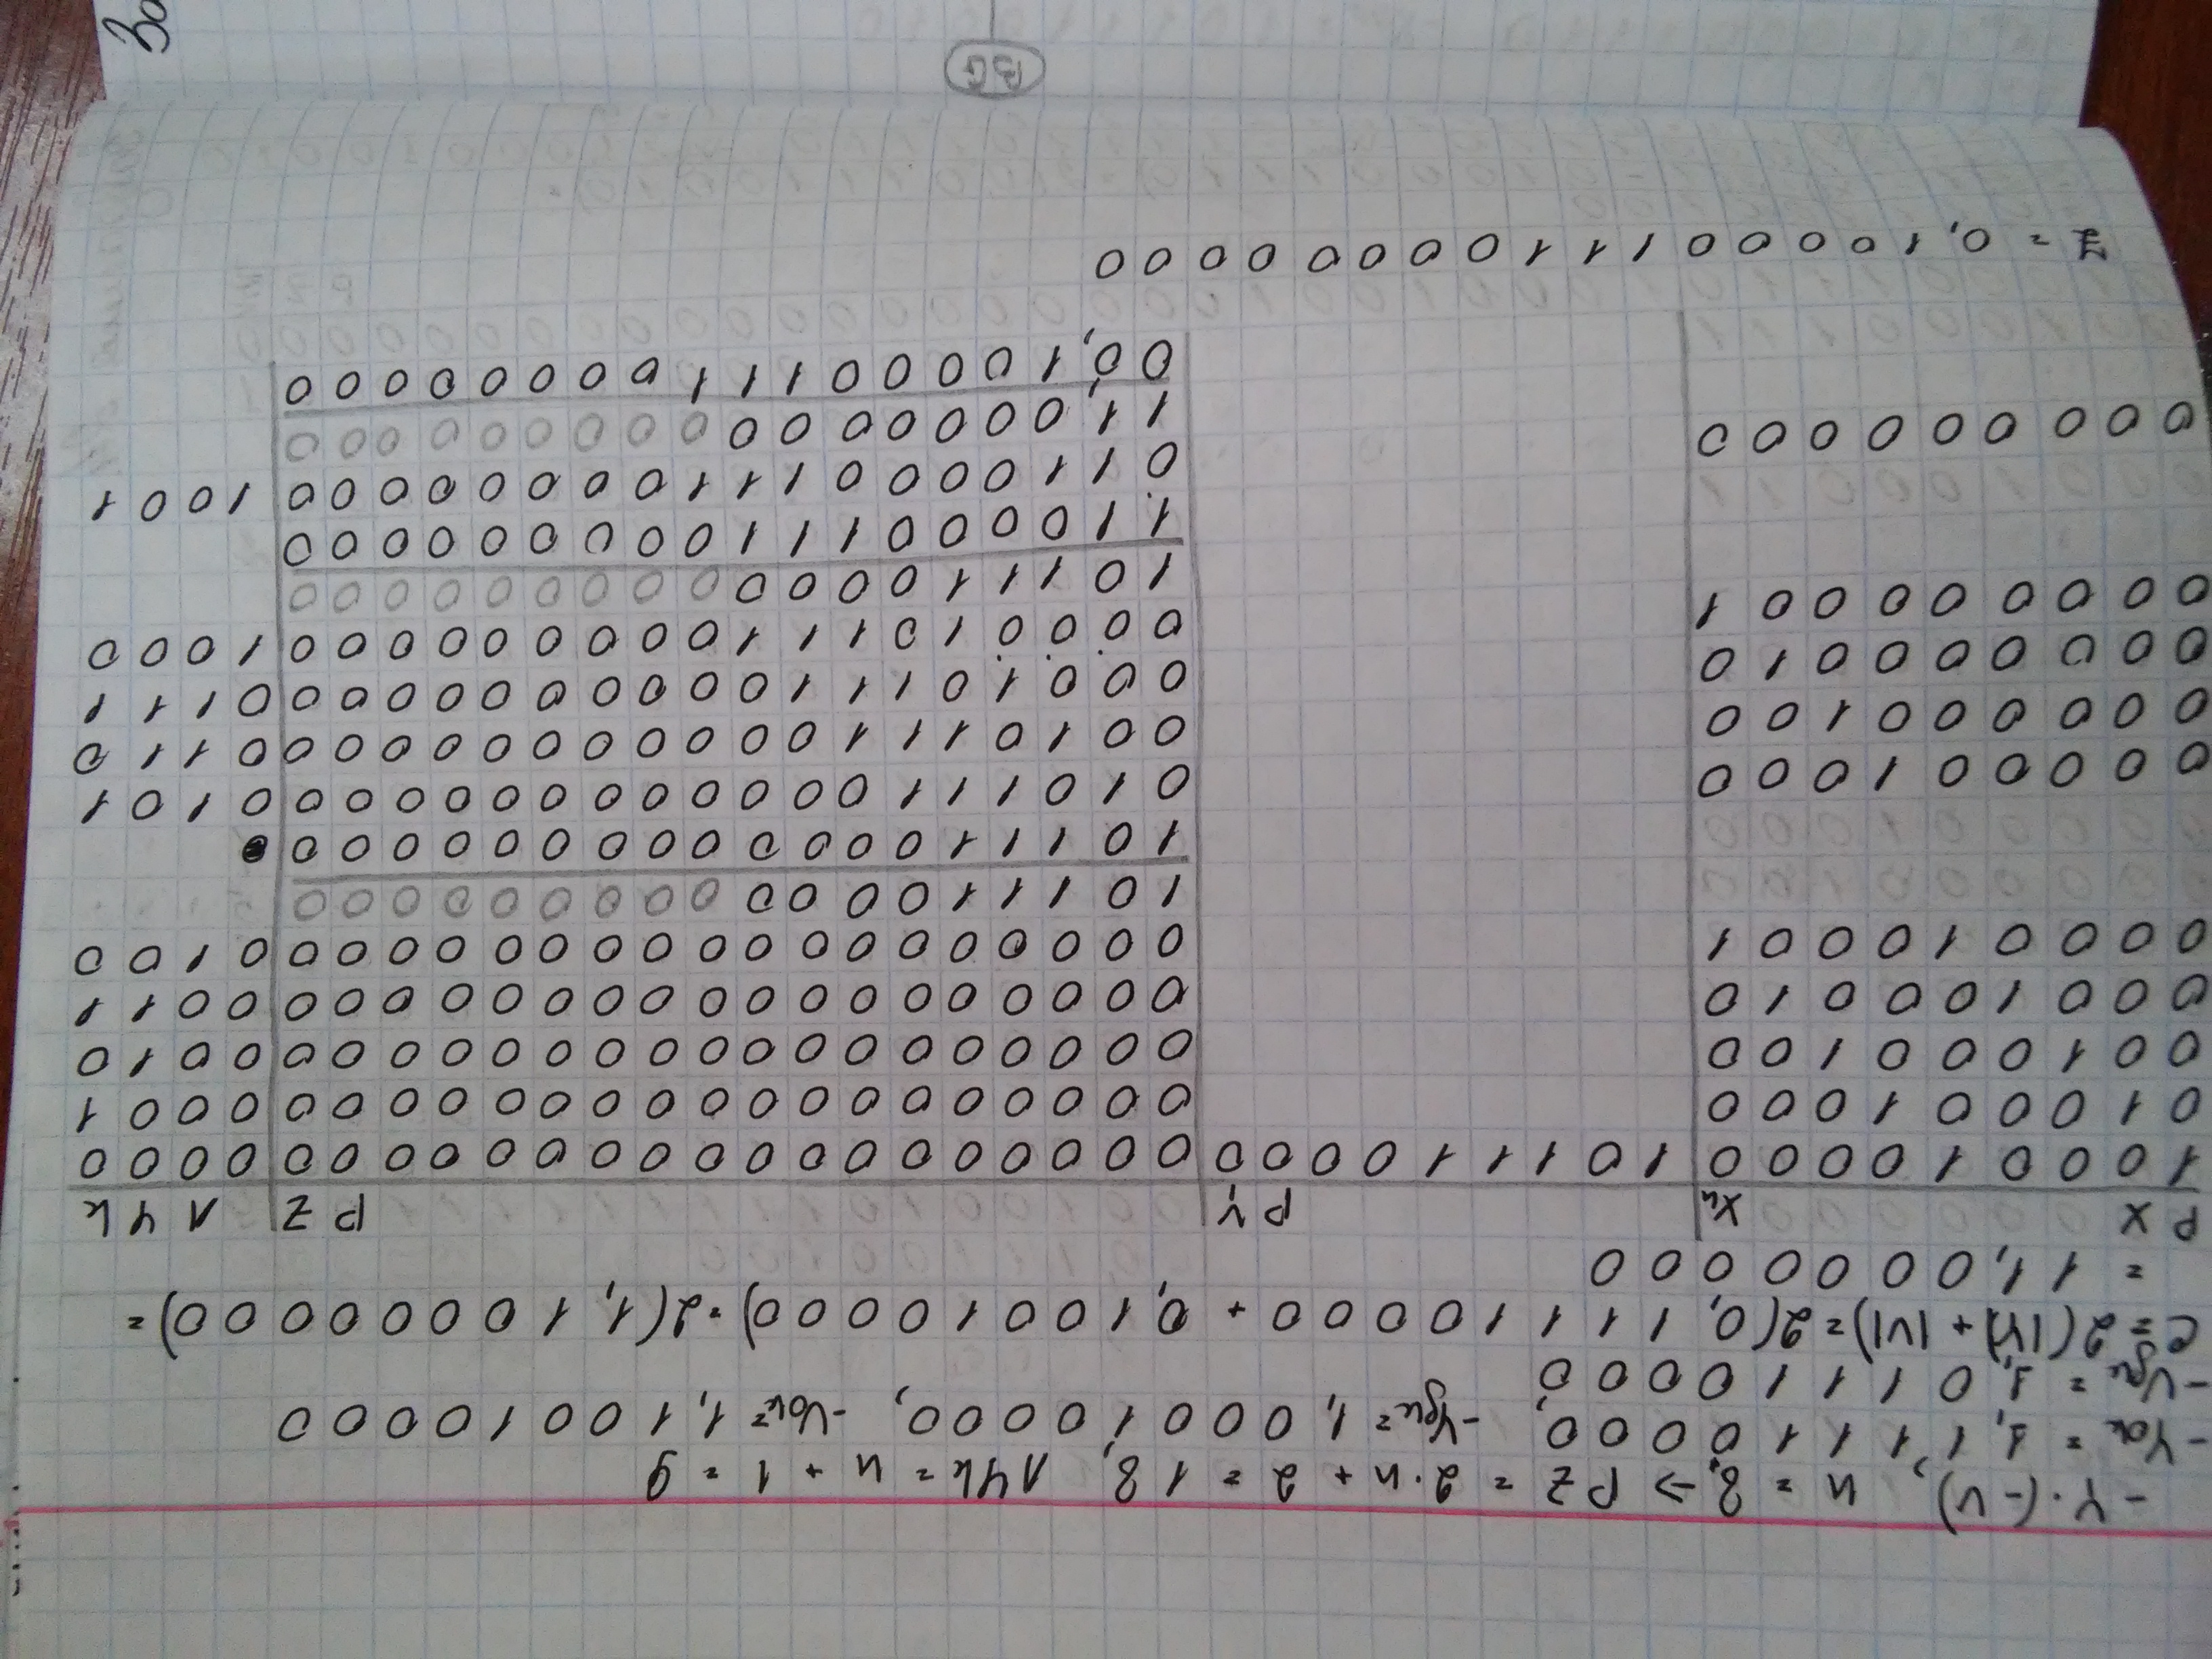 -Y·(-V), n = 8, -> PZ = 2·n + 2 = 18, ЛЧк = n + 1 = 9
-Yок = 1,11110000, -Yдк = 1,00010000, -Vок = 1,10010000
-Vдк = 1,01110000
C = 2(|Y|+|V|) = 2(0,11110000 + 0,10010000) = 2(1,10000000) =
= 11,0000000
PX Xн PY PZ ЛЧк
100010000 101110000 000000000000000000 0000
010001000 000000000000000000 0001
001000100 000000000000000000 0010
000100010 000000000000000000 0011
000010001 000000000000000000 0100
101110000000000000
101110000000000000
000001000 010111000000000000 0101
000000100 001011100000000000 0110
000000010 000101110000000000 0111
000000001 000010111000000000 1000
101110000000000000
110000111000000000
011000011100000000 1001
000000000 11,0000000000000000
00,1000011100000000
Z = 0,1000011100000000
BG
За